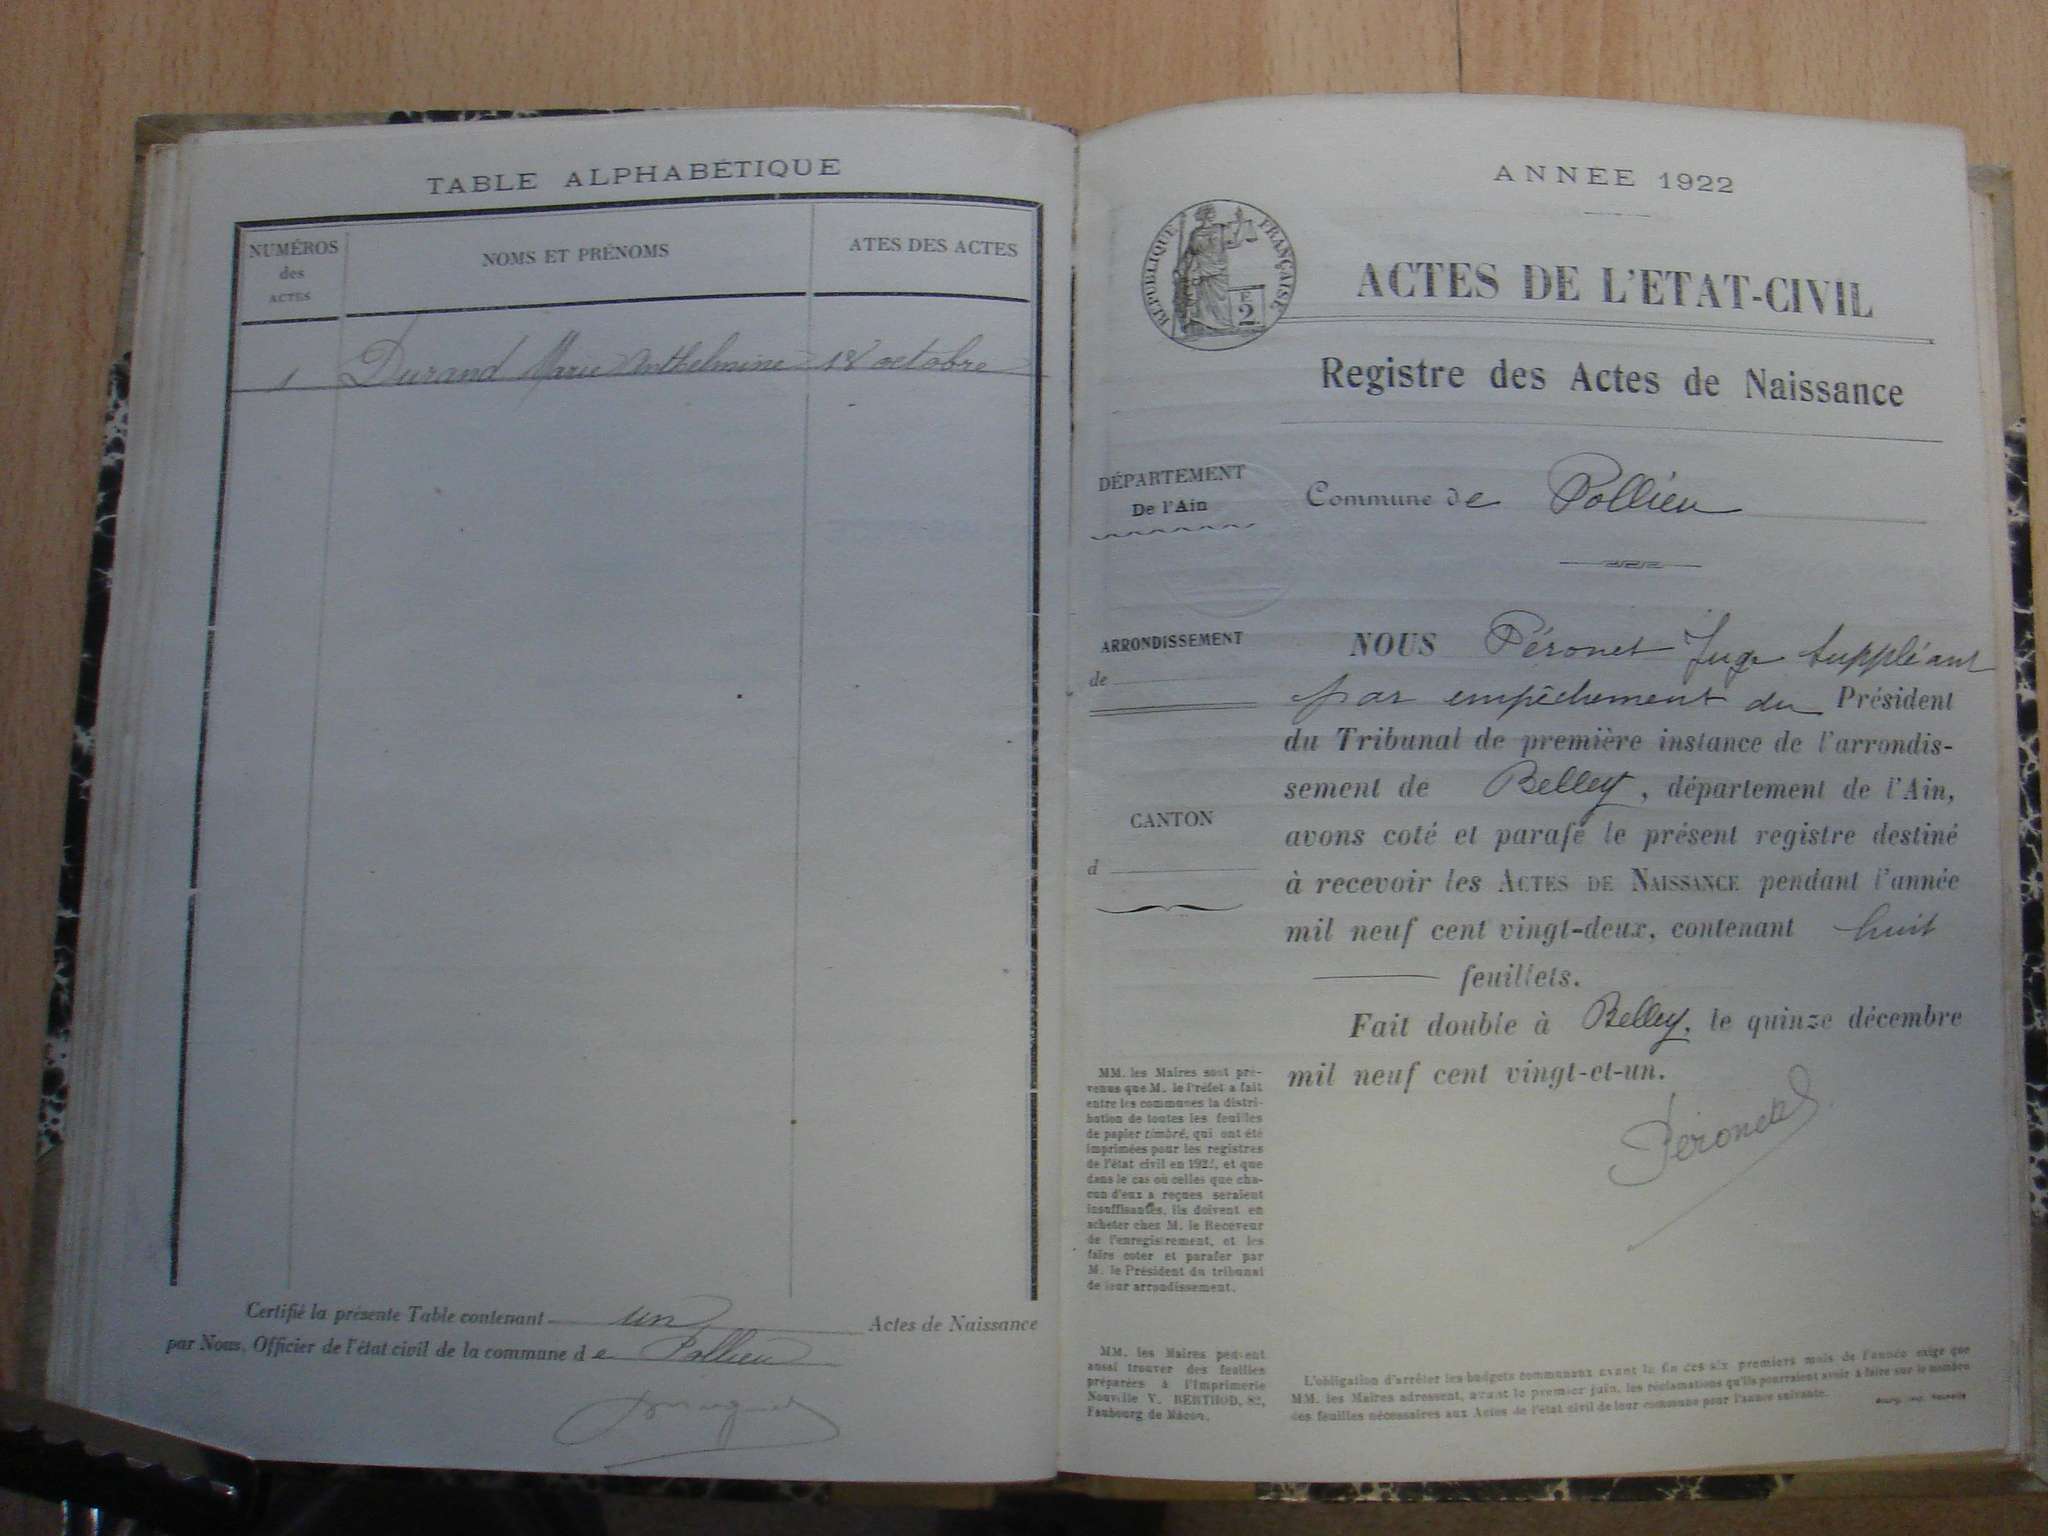 TABLE ALPHABÉTIQUE
NUMÉROS
des
ACTES
NOMS ET PRÉNOMS
ATES DES ACTES
1 Durand Marie Anthelmine 18 octobre
Certifié la présente Table contenant un Actes de Naissance
par Nous, Officier de l'état civil de la commune de Pollieu
ANNÉE 1922
RÉPUBLIQUE FRANÇAISE
E
2
ACTES DE L'ETAT-CIVIL
Registre des Actes de Naissance
DÉPARTEMENT
De l'Ain
Commune de Pollieu
ARRONDISSEMENT
de
CANTON
d
NOUS Péronet Juge Suppléant
par empêchement du Président
du Tribunal de première instance de l'arrondis-
sement de Belley, département de l'Ain,
avons coté et parafé le présent registre destiné
à recevoir les ACTES DE NAISSANCE pendant l'année
mil neuf cent vingt-deux, contenant huit
feuillets.
Fait double à Belley, le quinze décembre
mil neuf cent vingt-et-un.
Péronet
MM. les Maires sont pré-
venus que M. le Préfet a fait
entre les communes la distri-
bution de toutes les feuilles
de papier timbré, qui ont été
imprimées pour les registres
de l'état civil en 1922, et que
dans le cas où celles que cha-
cun d'eux a reçues seraient
insuffisantes, ils doivent en
acheter chez M. le Receveur
de l'enregistrement, et les
faire coter et parafer par
M. le Président du tribunal
de leur arrondissement.
MM. les Maires peuvent
aussi trouver des feuilles
préparées à l'Imprimerie
Nouvelle V. BERTHOD, 82,
Faubourg de Mâcon.
L'obligation d'arrêter les budgets communaux avant la fin des six premiers mois de l'année exige que
MM. les Maires adressent, avant le premier juin, les réclamations qu'ils pourraient avoir à faire sur le nombre
des feuilles nécessaires aux Actes de l'état civil de leur commune pour l'année suivante.